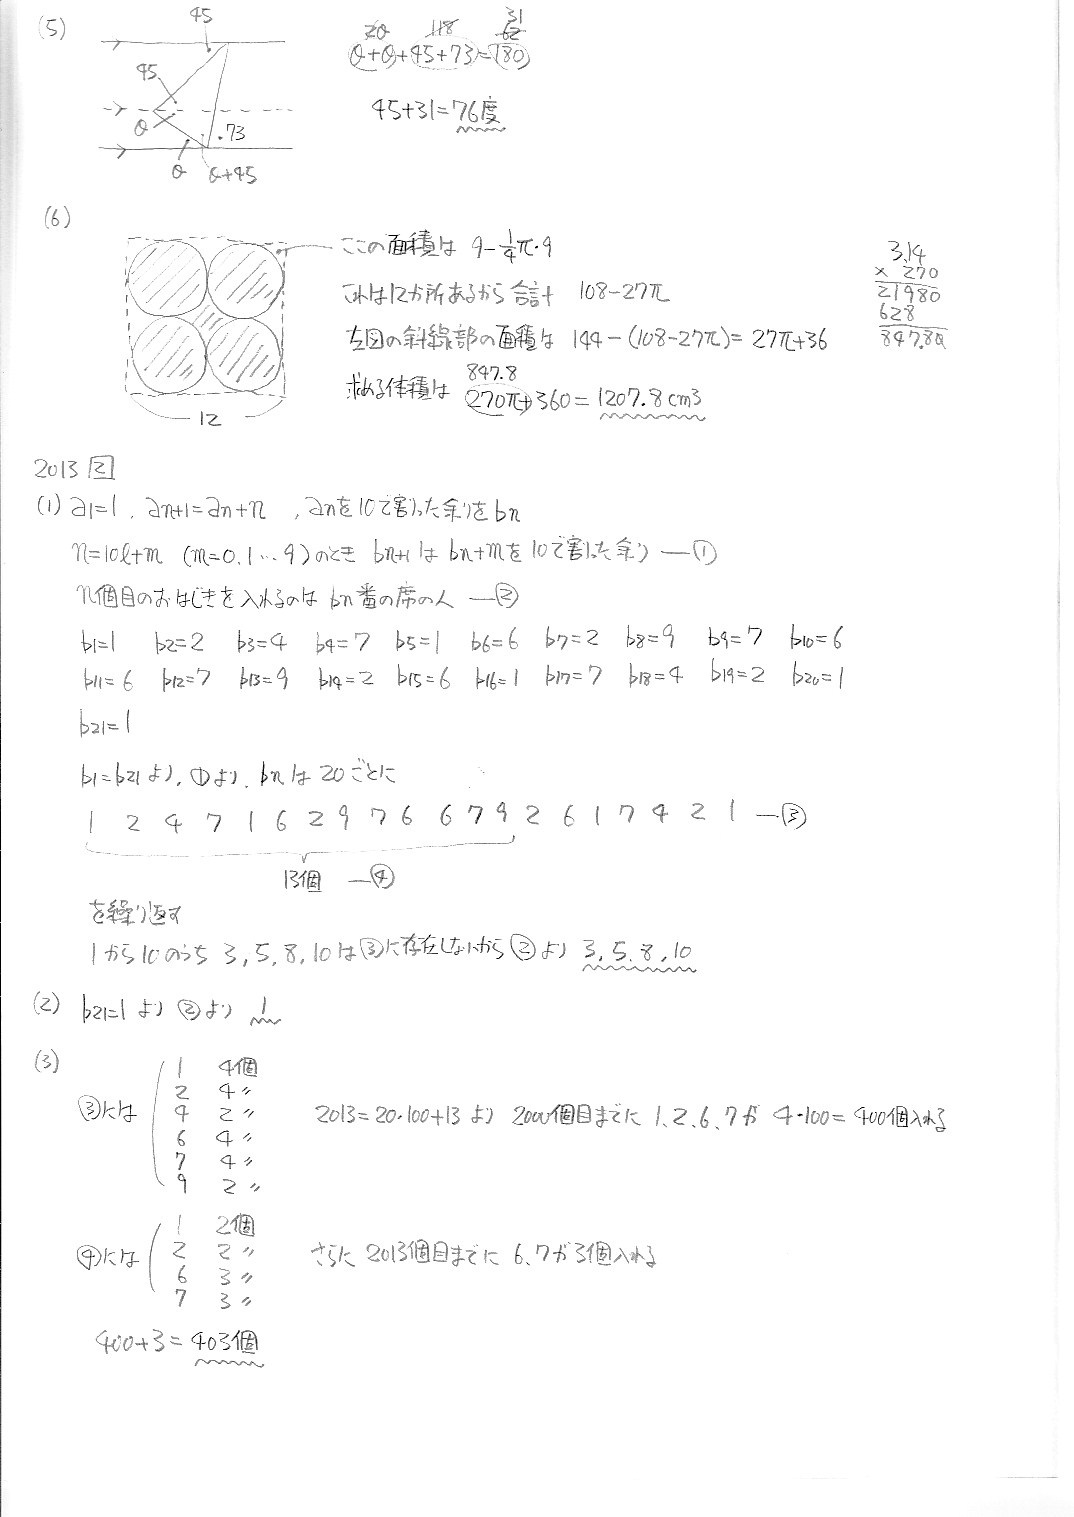 (5)
45
45
θ
.73
θ
θ+45
2θ 118 31
62
θ+θ+45+73=180
45+31=76度
(6)
12
ここの面積は 9-1/4π・9
これは12か所あるから合計 108-27π
左図の斜線部の面積は 144-(108-27π)=27π+36
847.8
求める体積は 270π+360=1207.8cm3
3.14
× 270
21980
628
847.80
2013 2
(1) a1=1, an+1=an+n , anを10で割った余りをbn
n=10l+m (m=0,1…9)のとき bn+1はbn+mを10で割った余り ―①
n個目のおはじきを入れるのは bn番の席の人 ―②
b1=1 b2=2 b3=4 b4=7 b5=1 b6=6 b7=2 b8=9 b9=7 b10=6
b11=6 b12=7 b13=9 b14=2 b15=6 b16=1 b17=7 b18=4 b19=2 b20=1
b21=1
b1=b21より,①より,bnは20ごとに
1 2 4 7 1 6 2 9 7 6 6 7 9 2 6 1 7 4 2 1 ―③
13個 ―④
を繰り返す
1から10のうち 3,5,8,10は③に存在しないから②より 3,5,8,10
(2) b21=1より ②より 1
(3)
③には
1 4個
2 4〃
4 2〃
6 4〃
7 4〃
9 2〃
2013=20・100+13より 2000個目までに 1,2,6,7が 4・100=400個入れる
④には
1 2個
2 2〃
6 3〃
7 3〃
さらに 2013個目までに 6,7が3個入れる
400+3=403個